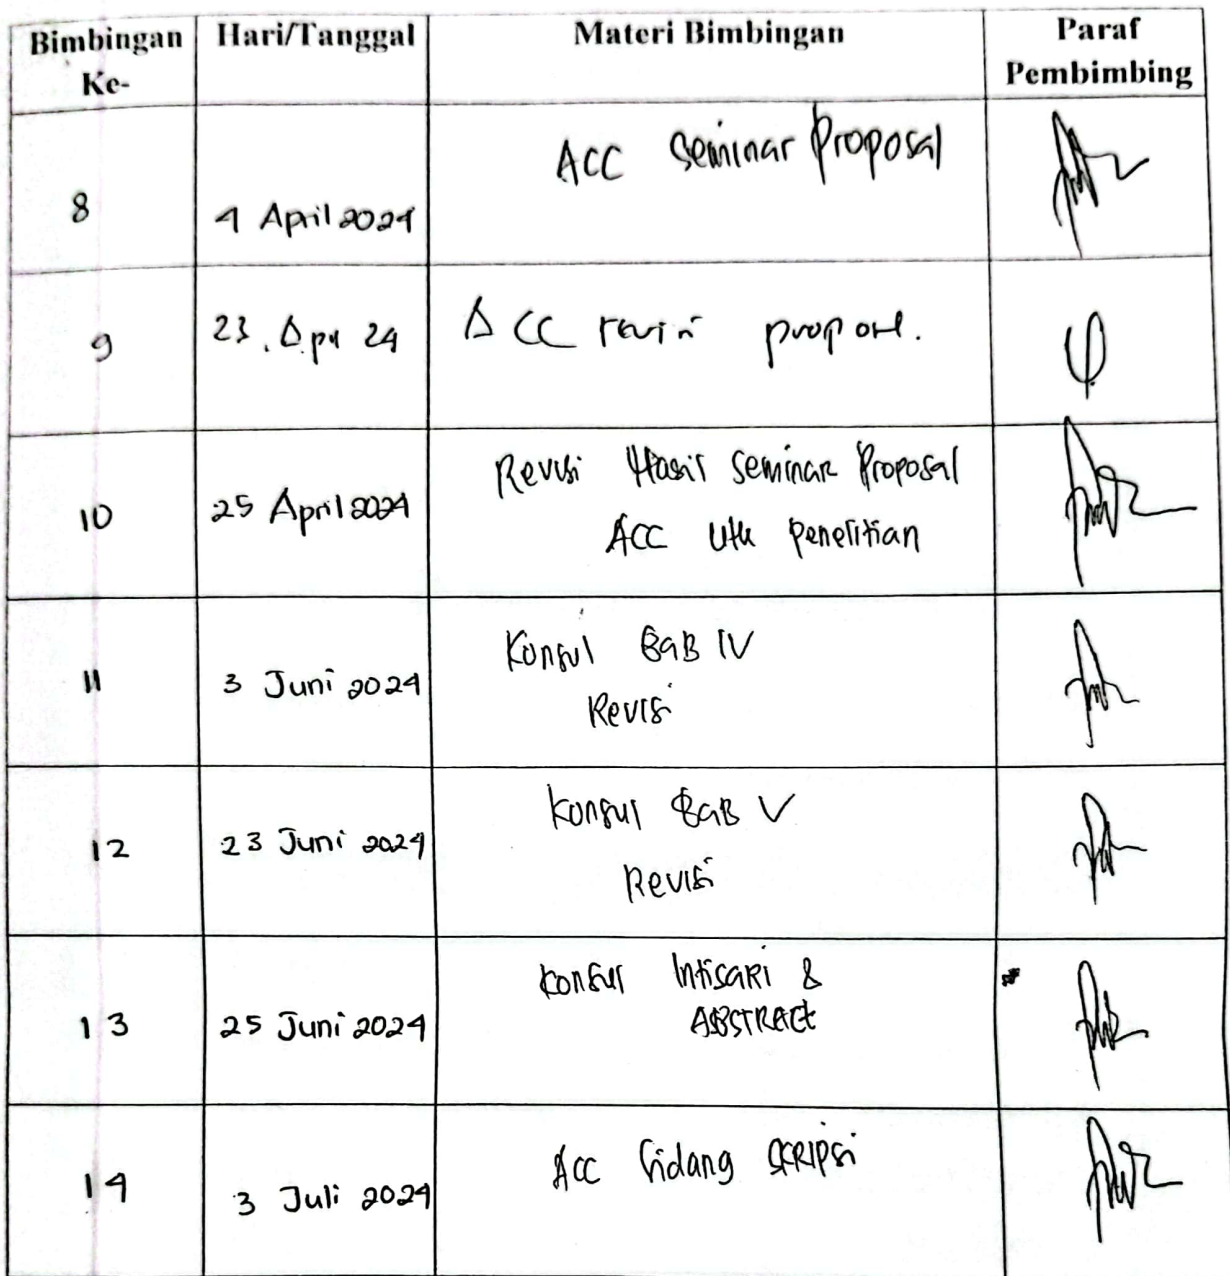 Bimbingan Ke- Hari/Tanggal Materi Bimbingan Paraf Pembimbing
8 4 April 2024 ACC Seminar Proposal
9 23. Apr 24 ACC revisi proposal.
10 25 April 2024 Revisi Hasil Seminar Proposal
ACC utk Penelitian
11 3 Juni 2024 Konsul BAB IV
Revisi
12 23 Juni 2024 Konsul BAB V
Revisi
13 25 Juni 2024 Konsul Intisari &
ABSTRACT
14 3 Juli 2024 ACC Sidang SKRIPSI